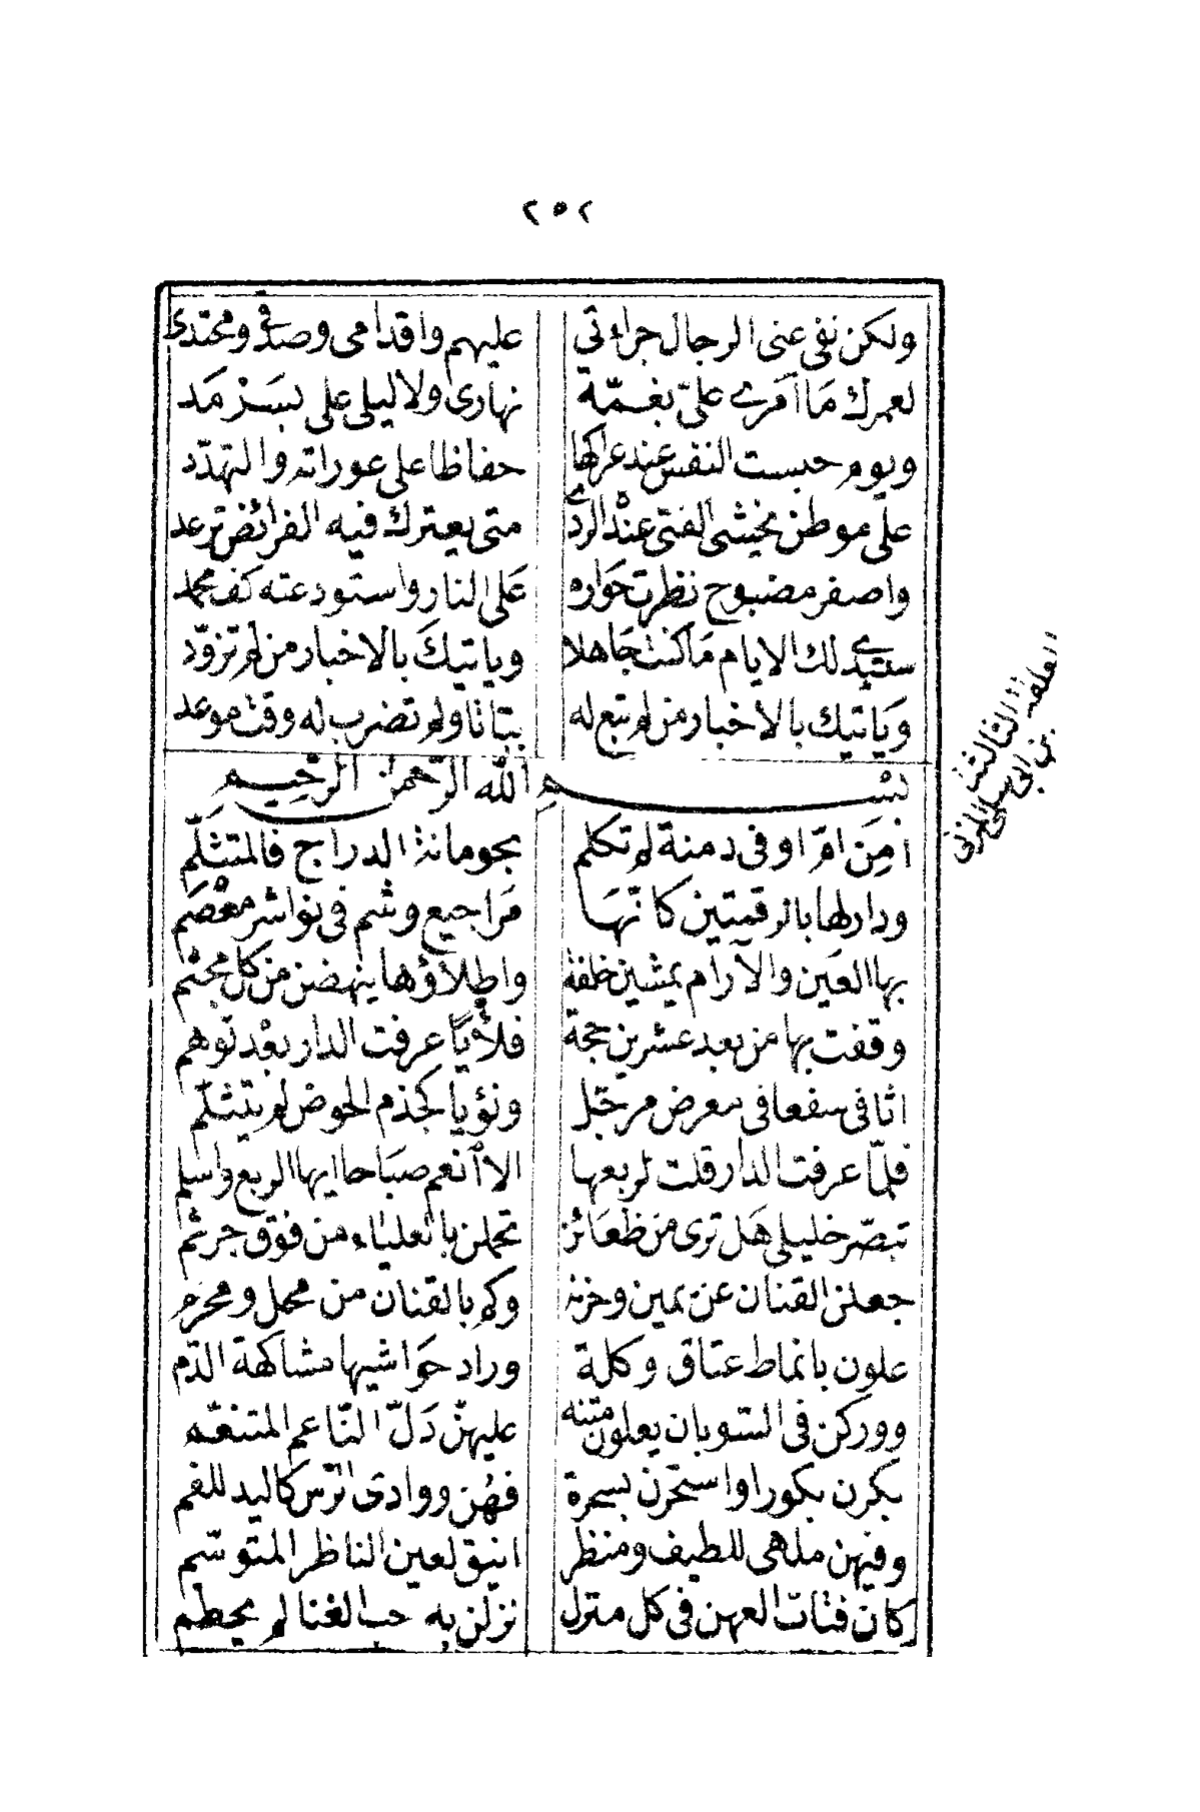 ٢٥٢
ولكن نفى عنى الرجال جراءتي عليهم واقدامى وصدقى ومحتدى
لعمرك مَا اَمْرِي علىّ بغمّة نهارى ولا ليلى على بسَرْمَد
ويوم حبست النفس عند عراكها حفاظا على عوراته والتهدّد
على موطن يخشى الفتى عنْد الردى متى يعترك فيه الفرائض ترعد
واصفر مضبوح نظرت حَواره عَلى النار واستودعته كف مجمد
ستبدي لك الايام مَا كنت جَاهلا وياتيكَ بالاخبار من لم تزوّد
وَياتيك بالاخبار من لم تبع له بتاتا ولم تضرب له وقت موعد
بسْم الله الرّحمن الرّحيم
اَمِن امّ اوفى دمنة لم تكلم بحومانة الدراج فالمتثلّم
ودار لها بالرقمتين كانّهَا مَراجيع وشم فى نواشر معْصَم
بها العَين والآرام يمشين خلفة واطلاؤها ينهضن من كل مجثم
وقفت بها من بعد عشرين حجة فلأيًا عرفت الدار بعْد توهم
اثافى سفعا فى معرض مرجَل ونؤيا كجذم الحوض لم يتثلّم
فلمّا عرفت الدار قلت لربعها الا انعم صبَاحا ايها الربع واسلم
تبصّر خليلى هَل ترى من ظعَائن تحملن بالعلياء من فوق جرثم
جعلن القنان عن يمين وحزنه وكم بالقنان من محل ومحرم
علون بانماط عتاق وكلة وراد حَواشيها مشاكهة الدّم
ووركن فى السوبان يعلون متنه عليهنّ دَلّ النّاعم المتنعّم
بكرن بكورا واستحرن بسحرة فهُن ووادى الرّس كاليد للفم
وفيهن ملهى للطيف ومنظر انيق لعين الناظر المتوسّم
كان فتات العهن فى كل منزل نزلن به حب الفنا لم يحطم
المعلقة الثالثة
بن ابى سلمى المزنى